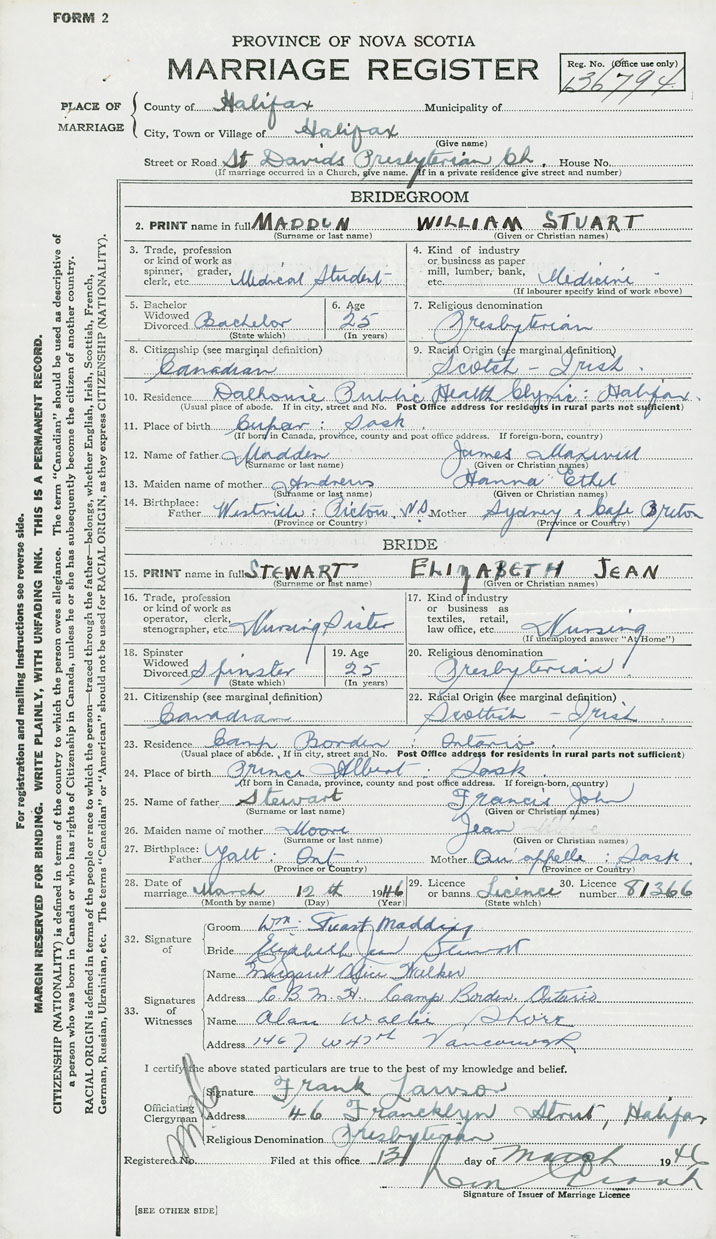 FORM 2
PROVINCE OF NOVA SCOTIA
MARRIAGE REGISTER
Reg. No. (Office use only)
136794
PLACE OF MARRIAGE
County of Halifax Municipality of
City, Town or Village of Halifax
(Give name)
Street or Road St Davids Presbyterian Ch. House No.
(If marriage occurred in a Church, give name. If in a private residence give street and number)
BRIDEGROOM
2. PRINT name in full MADDEN WILLIAM STUART
(Surname or last name) (Given or Christian names)
3. Trade, profession or kind of work as spinner, grader, clerk, etc. Medical Student
4. Kind of industry or business as paper mill, lumber, bank, etc. Medicine
(If labourer specify kind of work above)
5. Bachelor Widowed Divorced Bachelor
(State which)
6. Age 25
(In years)
7. Religious denomination Presbyterian
8. Citizenship (see marginal definition) Canadian
9. Racial Origin (see marginal definition) Scotch - Irish
10. Residence Dalhousie Public Health Clinic : Halifax.
(Usual place of abode. If in city, street and No. Post Office address for residents in rural parts not sufficient)
11. Place of birth Cupar : Sask
(If born in Canada, province, county and post office address. If foreign-born, country)
12. Name of father Madden James Maxwell
(Surname or last name) (Given or Christian names)
13. Maiden name of mother Andrews Hanna Ethel
(Surname or last name) (Given or Christian names)
14. Birthplace: Father Westville : Pictou, NS Mother Sydney : Cape Breton
(Province or Country) (Province or Country)
BRIDE
15. PRINT name in full STEWART ELIZABETH JEAN
(Surname or last name) (Given or Christian names)
16. Trade, profession or kind of work as operator, clerk, stenographer, etc. Nursing Sister
17. Kind of industry or business as textiles, retail, law office, etc. Nursing
(If unemployed answer "At Home")
18. Spinster Widowed Divorced Spinster
(State which)
19. Age 25
(In years)
20. Religious denomination Presbyterian
21. Citizenship (see marginal definition) Canadian
22. Racial Origin (see marginal definition) Scottish - Irish
23. Residence Camp Borden : Ontario
(Usual place of abode. If in city, street and No. Post Office address for residents in rural parts not sufficient)
24. Place of birth Prince Albert : Sask
(If born in Canada, province, county and post office address. If foreign-born, country)
25. Name of father Stewart Francis John
(Surname or last name) (Given or Christian names)
26. Maiden name of mother Moore Jean
(Surname or last name) (Given or Christian names)
27. Birthplace: Father Galt : Ont Mother Qu'appelle : Sask
(Province or Country) (Province or Country)
28. Date of marriage March 12th 1946
(Month by name) (Day) (Year)
29. Licence or banns Licence
(State which)
30. Licence number 81366
32. Signature of
Groom Wm. Stuart Madden
Bride Elizabeth Jean Stewart
33. Signatures of Witnesses
Name Margaret Alice Walker
Address C.B.M.H. Camp Borden, Ontario
Name Alan Shore
Address 1467 W 47th Vancouver
I certify the above stated particulars are true to the best of my knowledge and belief.
Officiating Clergyman
Signature Frank Lawson
Address 46 Francklyn Street, Halifax
Religious Denomination Presbyterian
Registered No. Filed at this office 13 day of March 1946
Signature of Issuer of Marriage Licence
[SEE OTHER SIDE]
For registration and mailing instructions see reverse side.
MARGIN RESERVED FOR BINDING. WRITE PLAINLY, WITH UNFADING INK. THIS IS A PERMANENT RECORD.
CITIZENSHIP (NATIONALITY) is defined in terms of the country to which the person owes allegiance. The term "Canadian" should be used as descriptive of
a person who was born in Canada or who has rights of Citizenship in Canada, unless he or she has subsequently become the citizen of another country.
RACIAL ORIGIN is defined in terms of the people or race to which the person—traced through the father—belongs, whether English, Irish, Scottish, French,
German, Russian, Ukrainian, etc. The terms "Canadian" or "American" should not be used for RACIAL ORIGIN, as they express CITIZENSHIP (NATIONALITY).